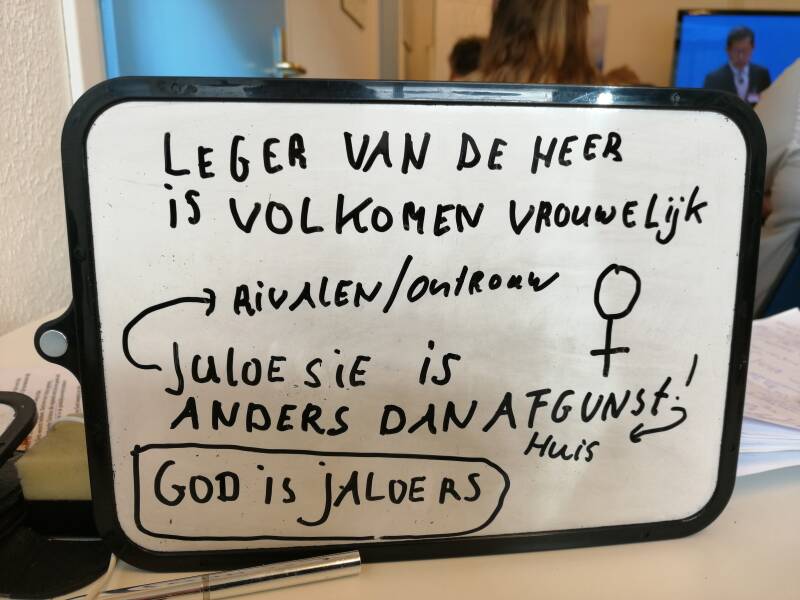 LEGER VAN DE HEER
iS VOLKOMEN VROUWELijk
RiVALEN/ONTROUW
JALOESiE iS
ANDERS DAN AFGUNST!
HUiS
GOD iS JALOERS